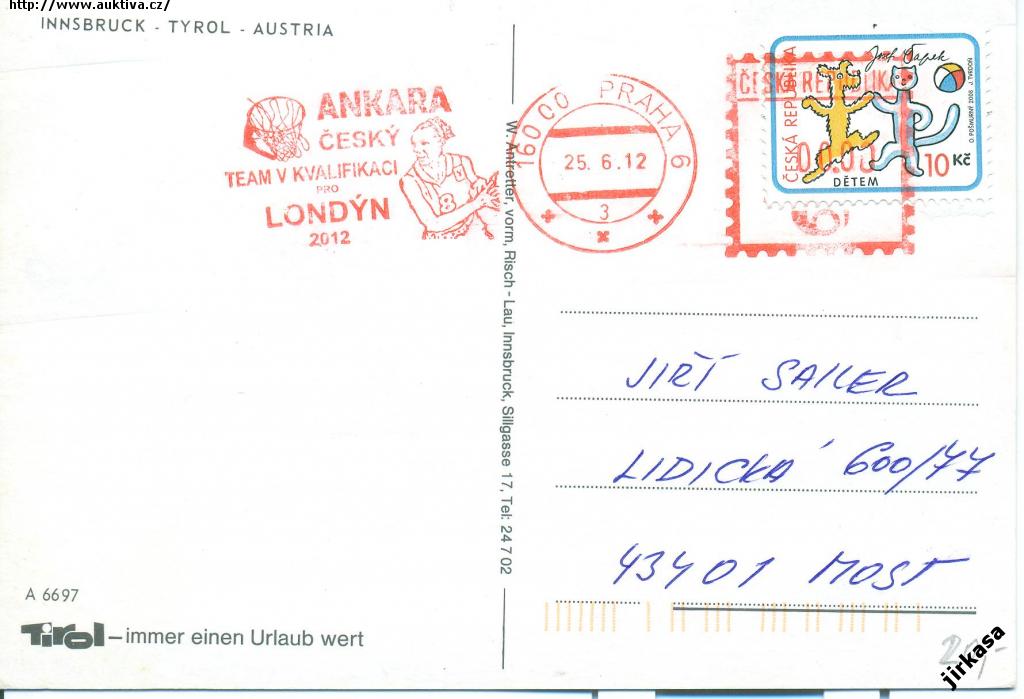 http://www.auktiva.cz/
INNSBRUCK - TYROL - AUSTRIA
ANKARA
ČESKÝ
TEAM V KVALIFIKACI
PRO
LONDÝN
2012
8
16000 PRAHA 6
25.6.12
3
ČESKÁ REPUBLIKA
ČESKÁ REPUBLIKA
Josef Čapek
O. POŠMURNÝ 2008 J. TVRDOŇ
10 Kč
DĚTEM
W. Antretter, vorm, Risch - Lau, Innsbruck, Sillgasse 17, Tel: 24 7 02
JIŘÍ SAILER
LIDICKÁ 600/77
43401 MOST
A 6697
Tirol – immer einen Urlaub wert
20,-
jirkasa